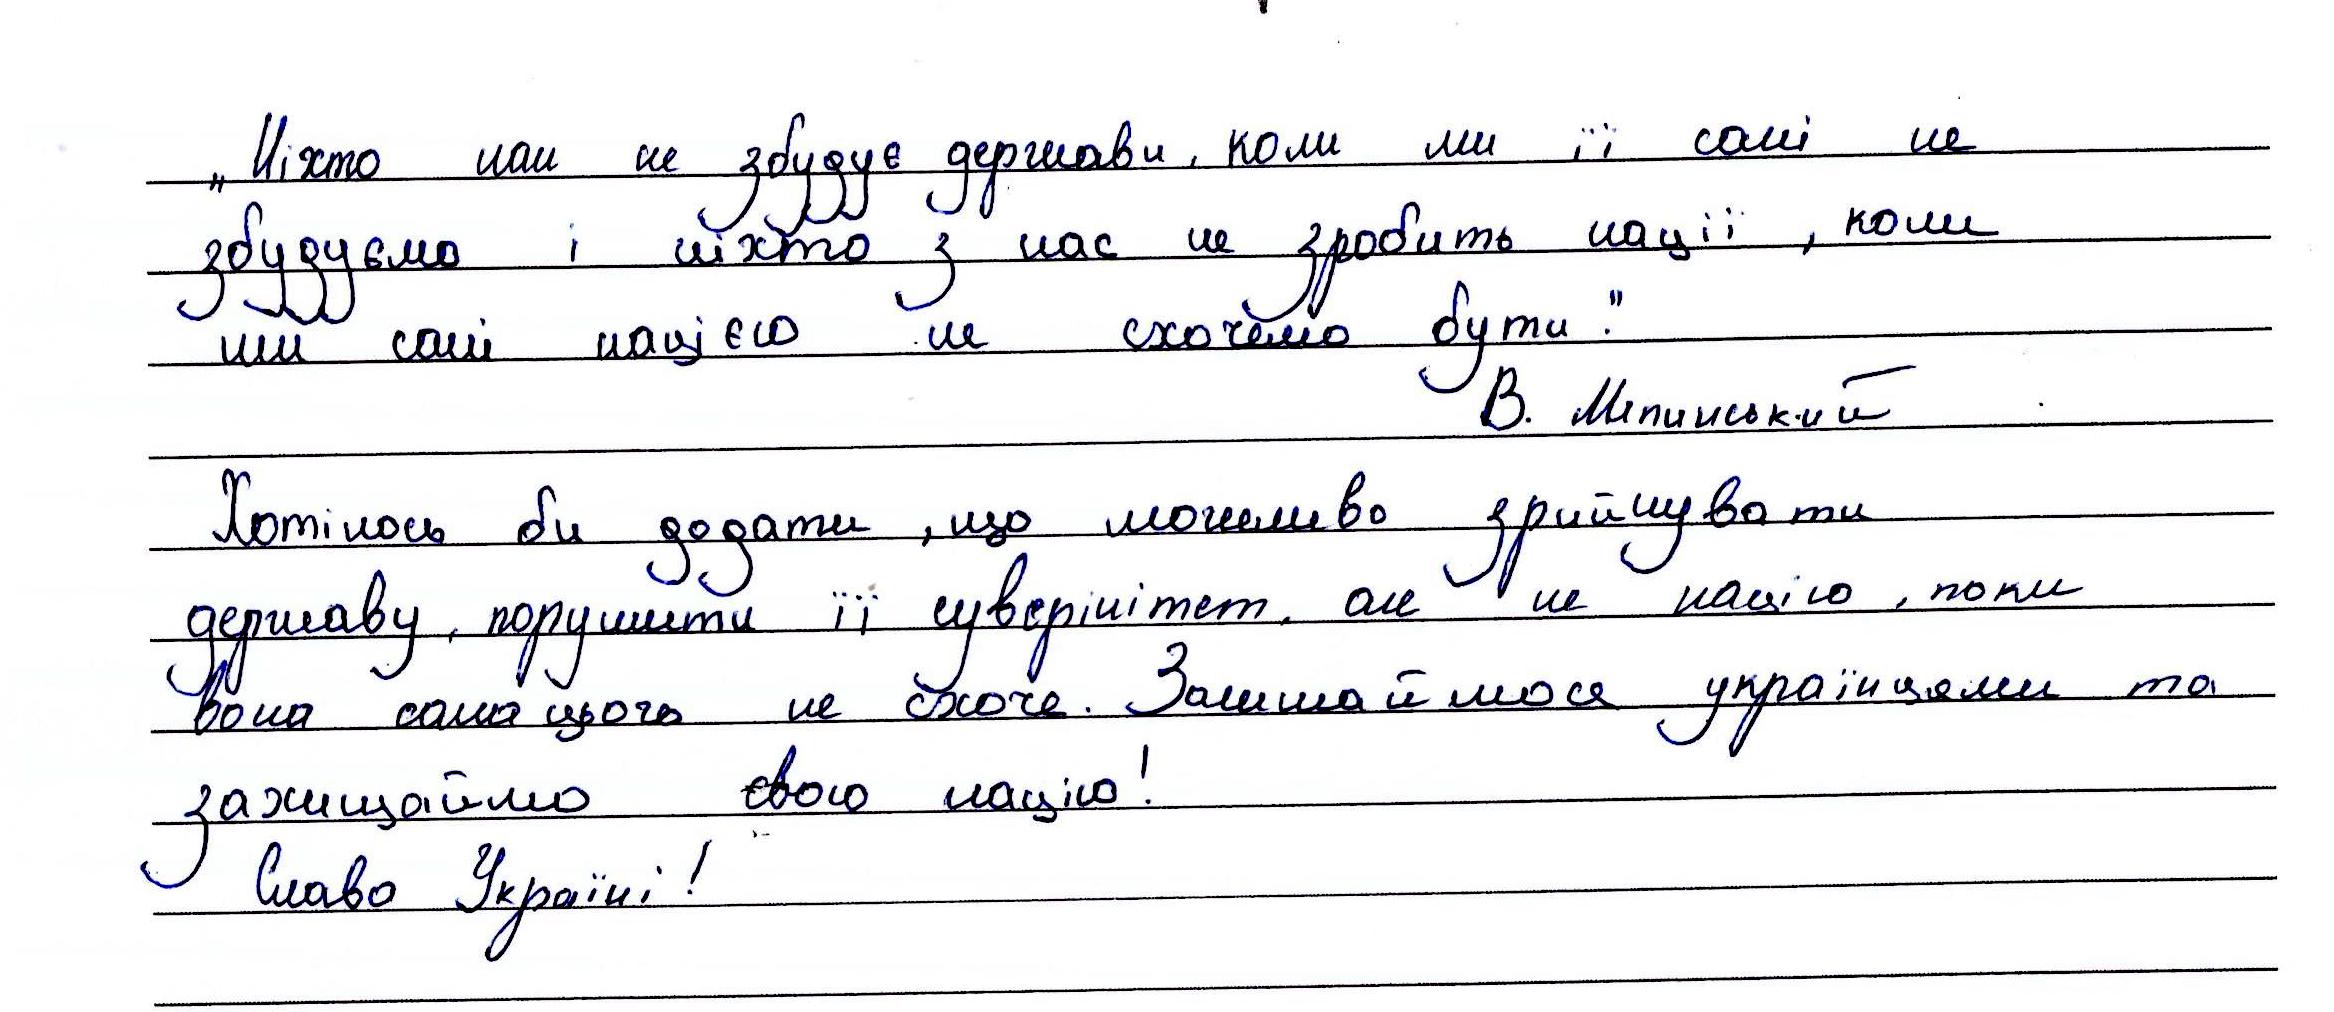 „Ніхто нам не збудує держави, коли ми її самі не
збудуємо і ніхто з нас не зробить нації, коли
ми самі нацією не схочемо бути."
В. Липинський
Хотілось би додати, що можливо зруйнувати
державу, порушити її суверінітет, але не націю, поки
вона сама цього не схоче. Залишаймося українцями та
захищаймо свою націю!
Слава Україні!